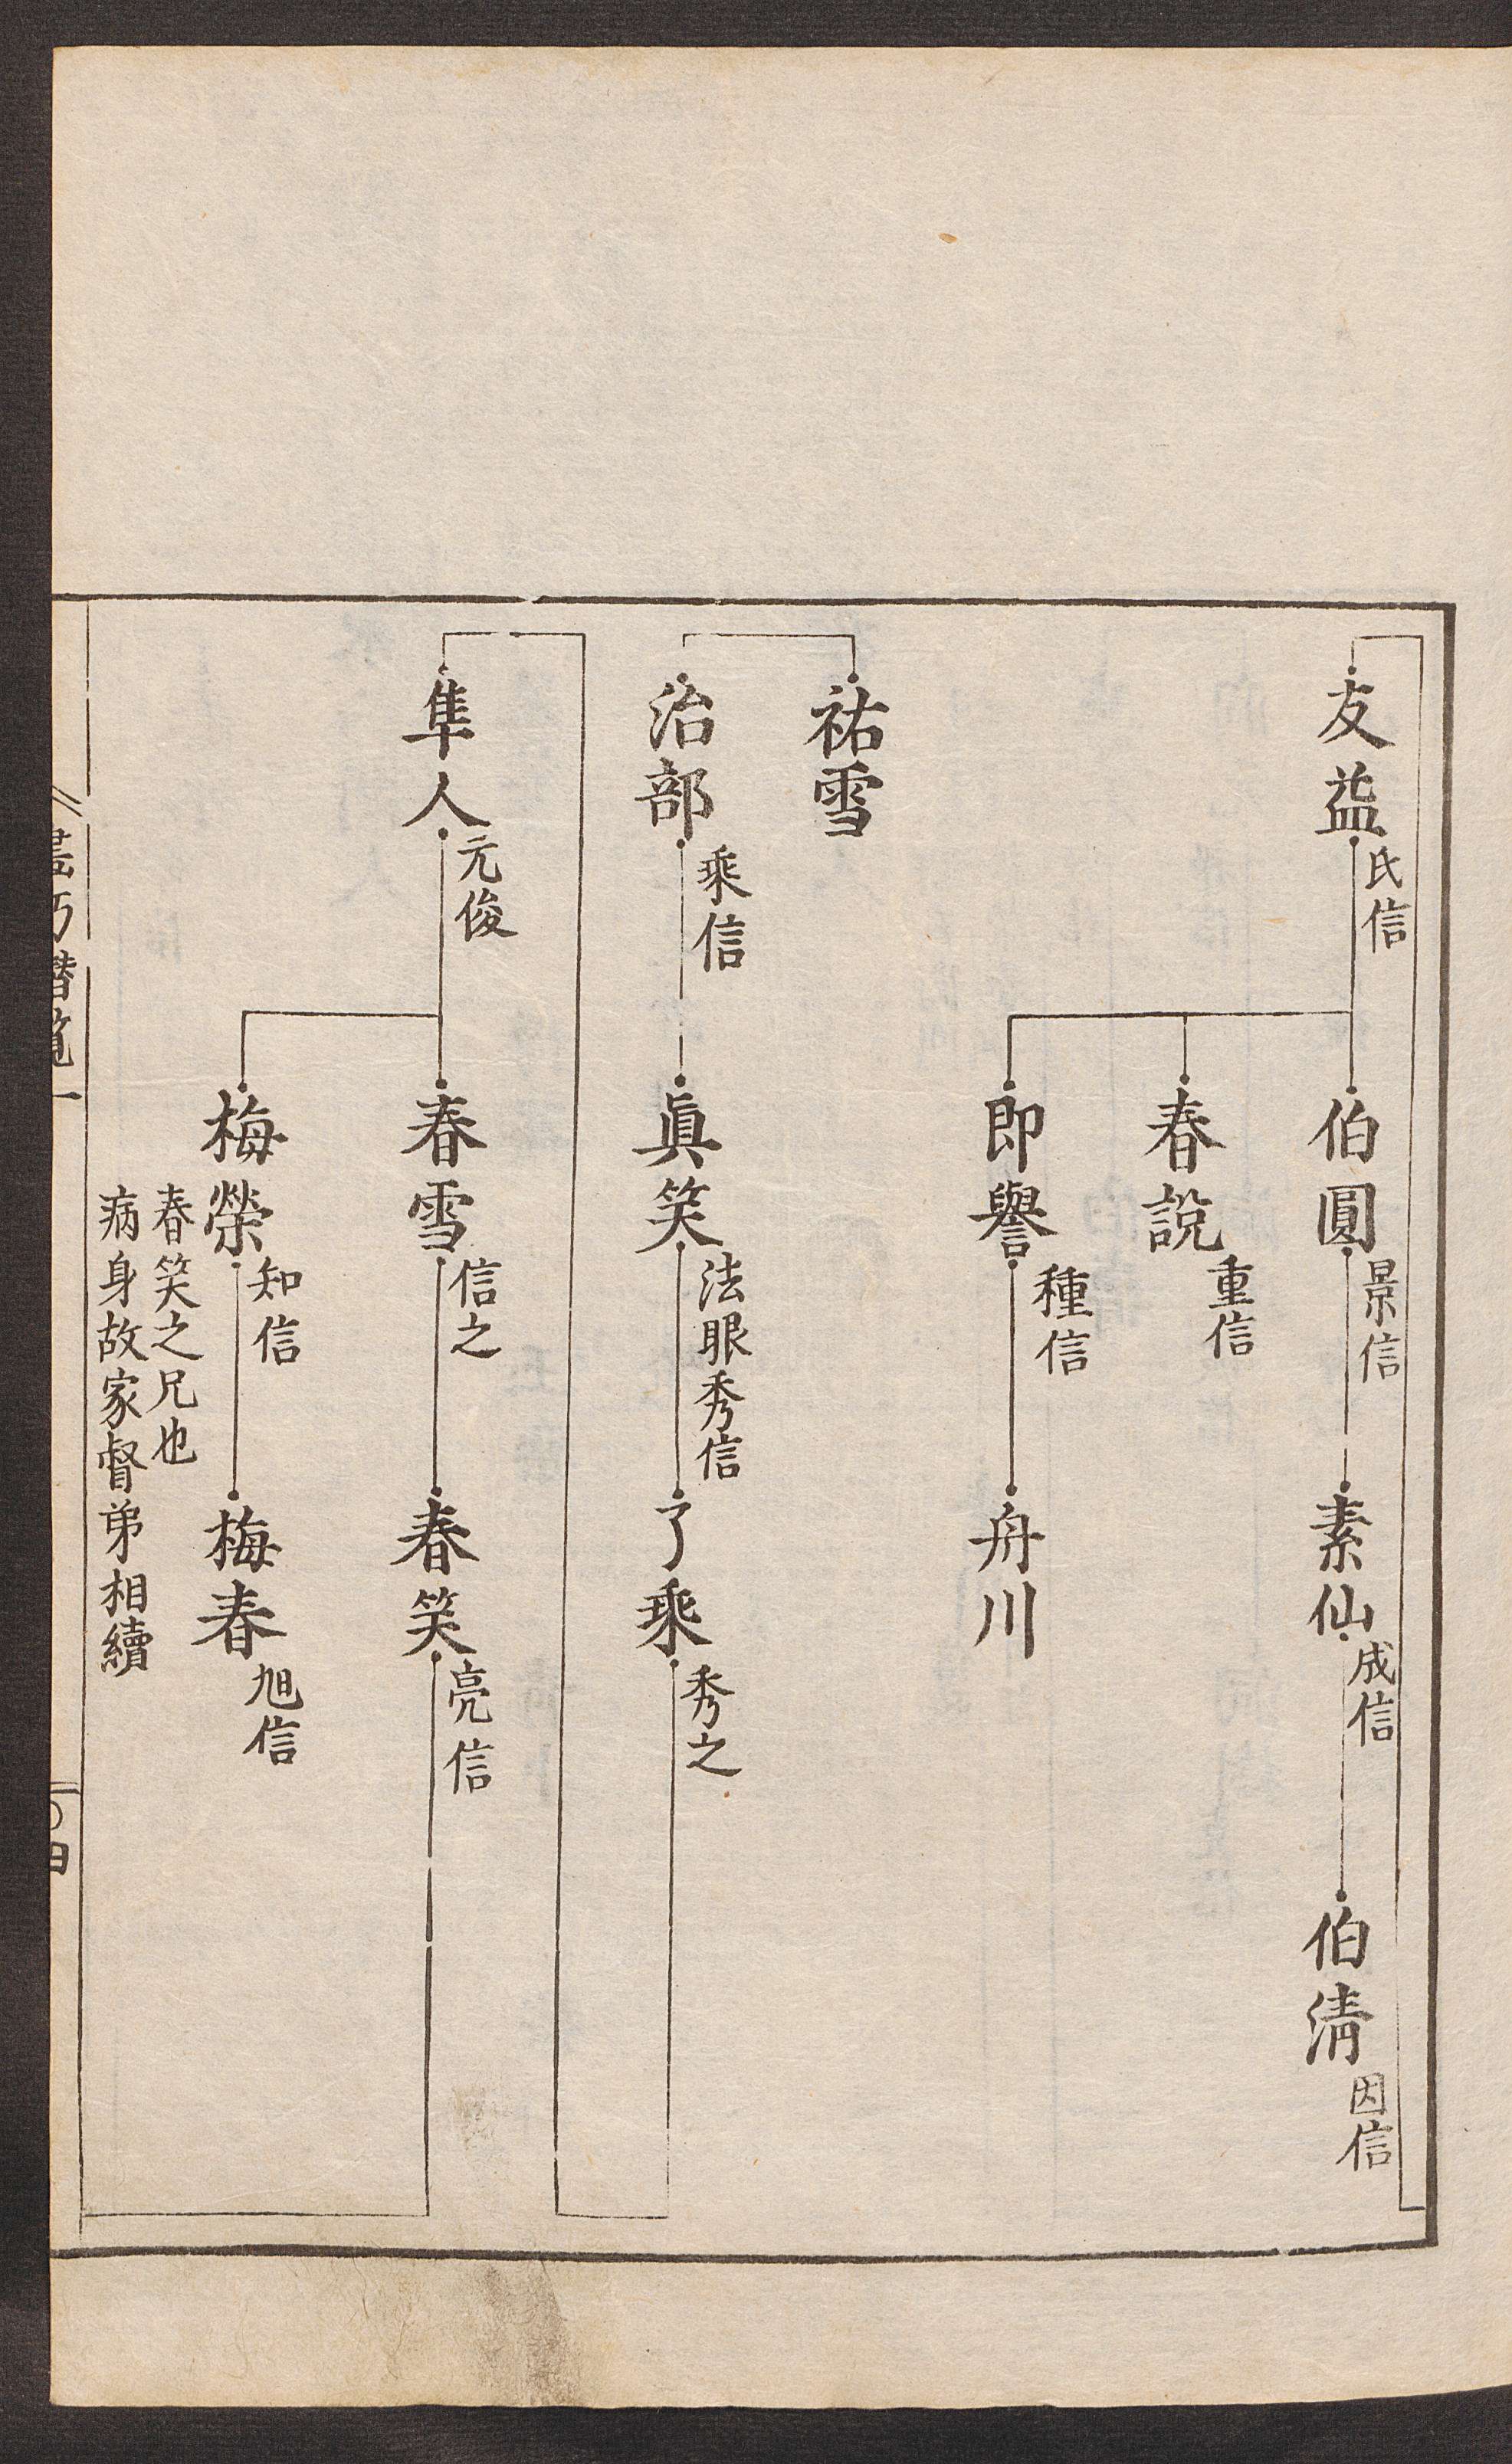 友益
氏信
伯圓
景信
素仙
成信
伯淸
因信
春說
重信
即譽
種信
舟川
祐雪
治部
乘信
眞笑
法眼秀信
了乘
秀之
隼人
元俊
春雪
信之
春笑
亮信
梅榮
知信
春笑之兄也
病身故家督弟相續
梅春
旭信
畫巧潛覽一
〇四